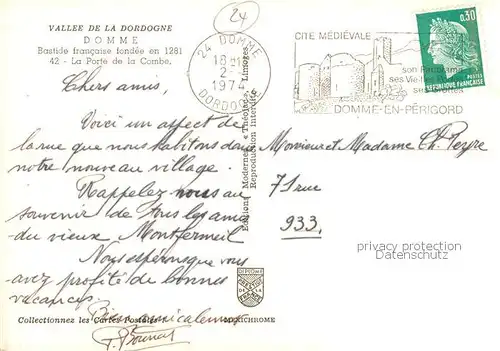 VALLEE DE LA DORDOGNE
DOMME
Bastide française fondée en 1281
42 - La Porte de la Combe.
24
24 DOMME
2-
1974
DORDOGNE
CITÉ MÉDIÉVALE
son Panorama
ses Vie
DOMME-EN-PÉRIGORD
0,30
POSTES
REPUBLIQUE FRANÇAISE
Chers amis,
Voici un aspect de
la rue que nous habitons dans
notre nouveau village.
Rappelez nous au
souvenir de tous les amis
du vieux Montfermeil
Nous espérons que vous
avez profité de bonnes
vacances.
Bien amicalement
Editions Modernes « Théojac » Limoges
Reproduction interdite
Monsieur et Madame Ch. Peyre
71 rue
933.
privacy protection
Datenschutz
DIPLOME
PRESTIGE
DE LA
FRANCE
Collectionnez les Cartes Postales
MEXICHROME